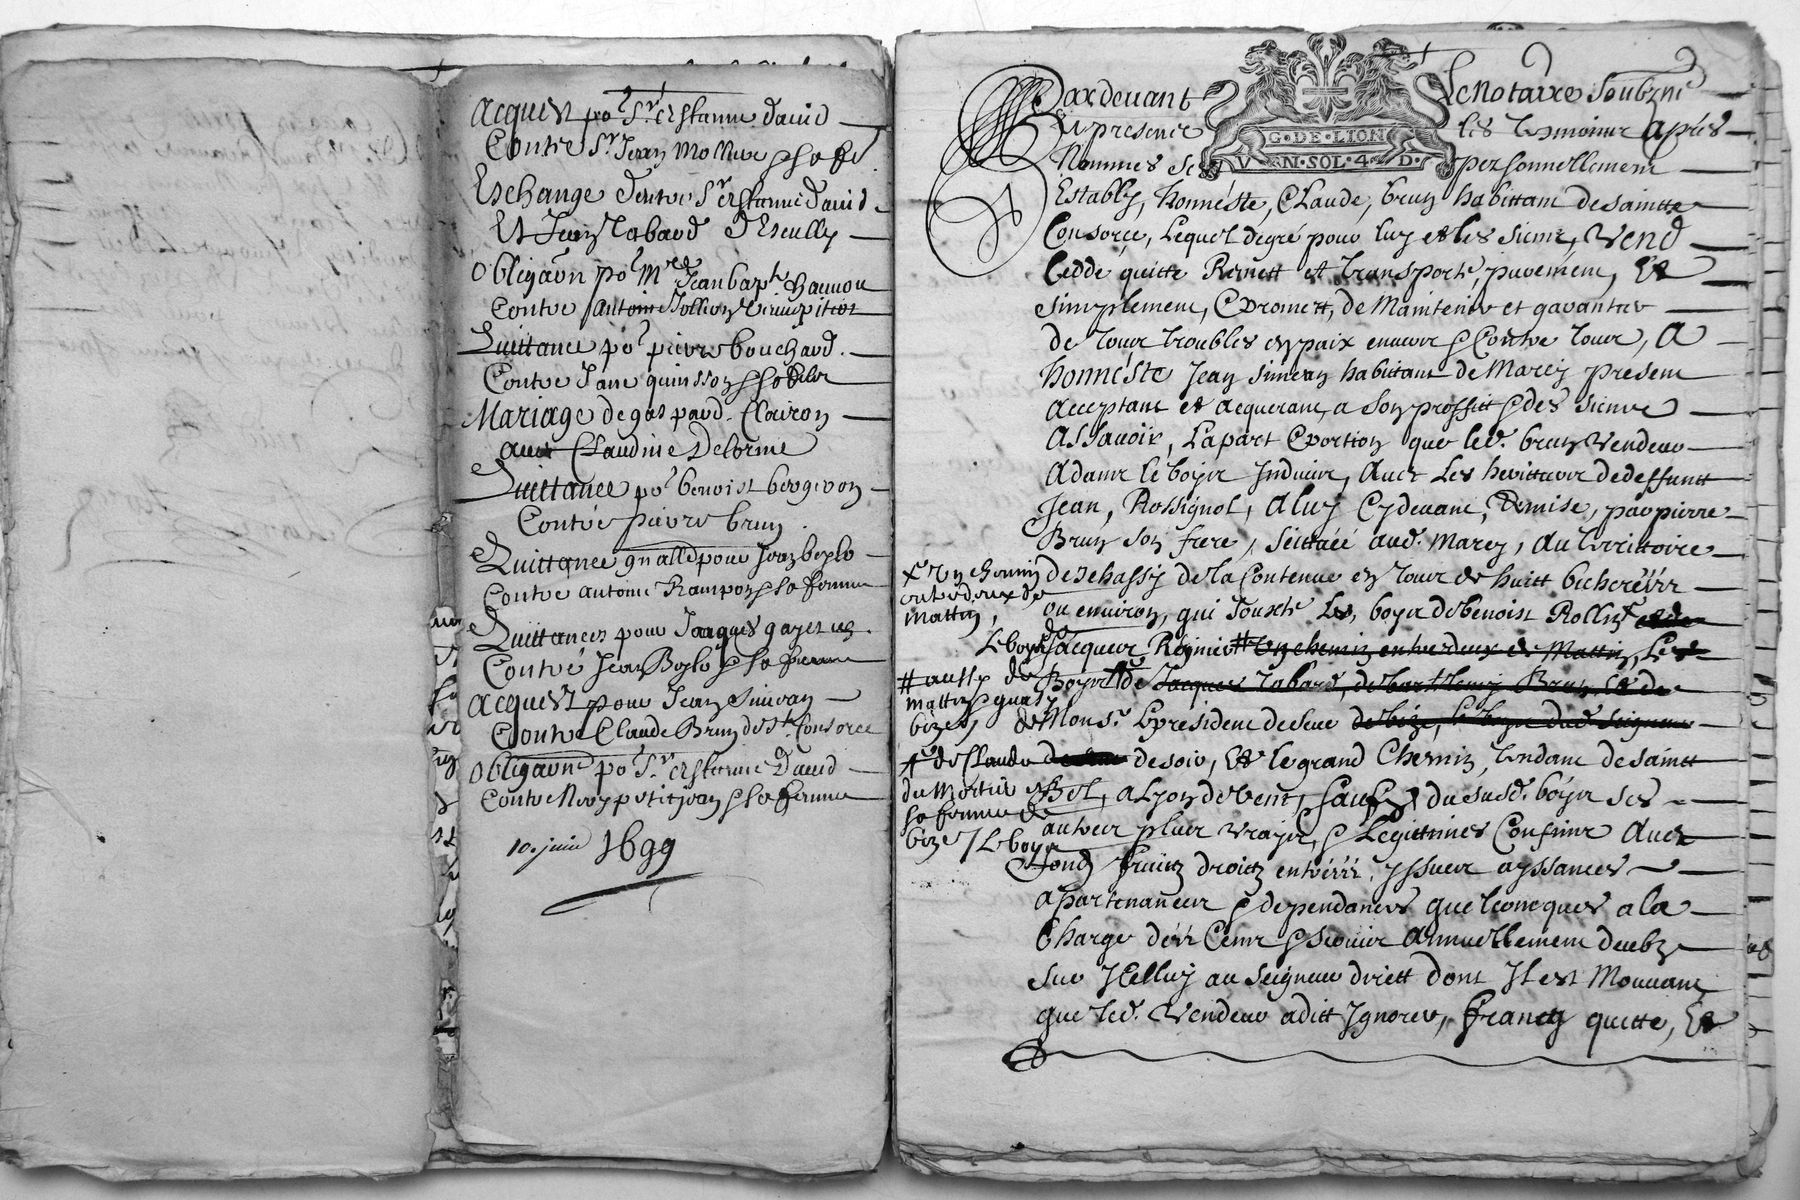 Acquest po.r S.r estienne david
Contre S.r Jean Mollier & sa fe.
Eschange d'entre S.r estienne david
Et Jean Tabard d'Escully
Obligaôn po.r M.re Jean bap.te
Contre Antoine Jollion
Quittance po.r pierre bouchard.
Contre Jane quinsson & sa
Mariage de gaspard. Clairon
auec Claudine Delorme
Quittance po.r benoist bergeron
Contre pierre brun.
Quittance gnalle pour Jean boylo
Contre antoine Rampon & sa femme
Quittances pour Jacques gayet
Contre Jean Boylo & sa femme
Acquest pour Jean Simean
Contre Claude Brun de S.te Consorce
Obligaôn po.r S.r estienne David
Contre petitjean & sa femme
10. juin 1699
Pardeuant Le Notaire Soubzne
Et presence les tesmoins Apres
Nommes se personnellement
G·DE·LION
V N·SOL·4 D·
Estably, honneste, Claude, brun habittant de saincte
Consorce, Lequel de gré pour luy et les siens, Vend
Cedde quitte Remett et transporte, purement, Et
simplement, & promett, de Maintenir et garantir
de tours troubles en paix enuers & Contre tous, A
honneste Jean simean habittant de Marcy present
acceptant et acquerant, a son proffitt & des siens
Assauoir, La part & portion que led. brun Vendeur
a dans le boys Induiur, Auec Les herittiers de deffunt
Jean, Rossignol, A luy Cydeuant, Remise, par pierre
Brun son frere, seittuéé aud. Marcy, Au territoire
x Un chemin de Jehassy de la Contenue en tout de huitt bicherééz
entredeux de ou enuiron, qui Jouxte Les, boys de benoist Rollin et de
mattin,
Le boys de Jacques Reynier # Un chemin entredeux de Mattin, Les
# aussy de Boys de Jacques Tabard, de barthlemy Brun, Et de
mattin & quasy
bize, de Mons.r Le president de seue de bize, Le boys dud. Seigneur
# de Claude de soir, Et le grand Chemin, tendant de sainct
du Mortier & Bel, a Lyon de vent, sauf du susd. boys ses
sa femme de
bize / Le boys autres plus vrays, & Legittimes Confins Auec
fonds fruitz droitz entrééz, yssues ayssances
apartenances & dependances quelconques a la
Charge dérz Cens & seruis Annuellement deubz
sur Jcelluy au Seigneur direct dont Jl est Mouuant
que led. Vendeur a ditt Jgnorer, francq quitte, Et